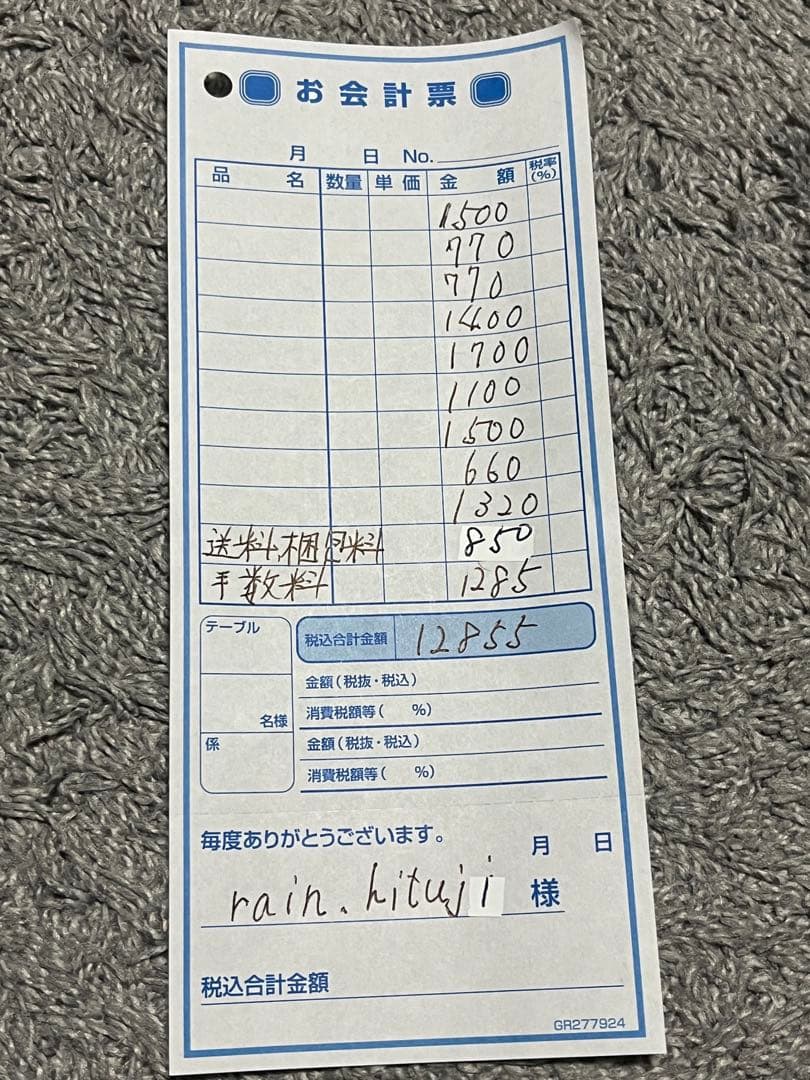 お会計票
月 日 No.
品名 数量 単価 金額 税率(%)
1500
770
770
1400
1700
1100
1500
660
1320
送料、梱包料 850
手数料 1285
テーブル
税込合計金額 12855
金額(税抜・税込)
名様
消費税額等( %)
係
金額(税抜・税込)
消費税額等( %)
毎度ありがとうございます。
月 日
rain.hituji 様
税込合計金額
GR277924